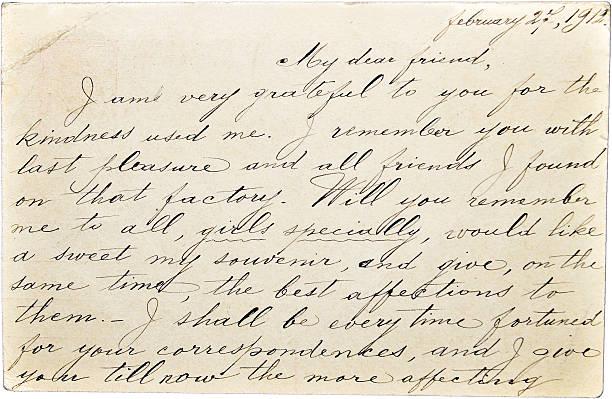 february 2d, 1912.
My dear friend,
I am very grateful to you for the
kindness used me. I remember you with
last pleasure and all friends I found
on that factory. Will you remember
me to all, girls specially, would like
a sweet my souvenir, and give, on the
same time, the best affections to
them.- I shall be every time fortuned
for your correspondences, and I give
you till now the more affecting